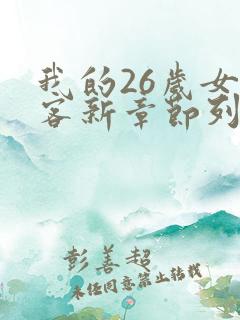 我的26岁女
客新章节列
彭善超
未经同意禁止转载